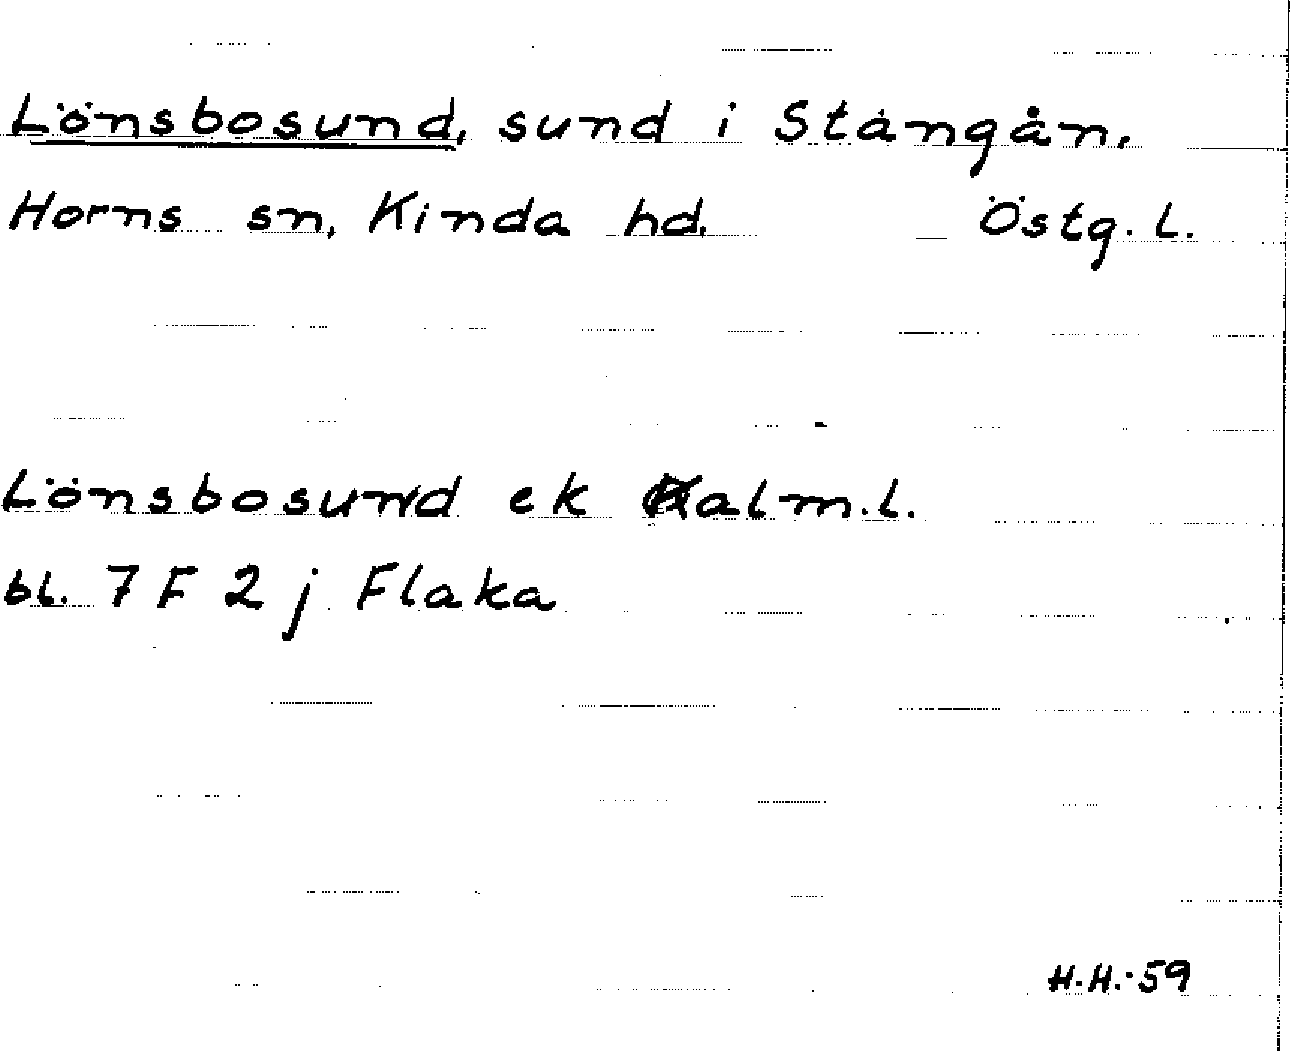 Lönsbosund, sund i Stångån,
Horns sn, Kinda hd. Östg. L.
Lönsbosund ek Kalm.l.
bl. 7 F 2 j Flaka
H.H.-59